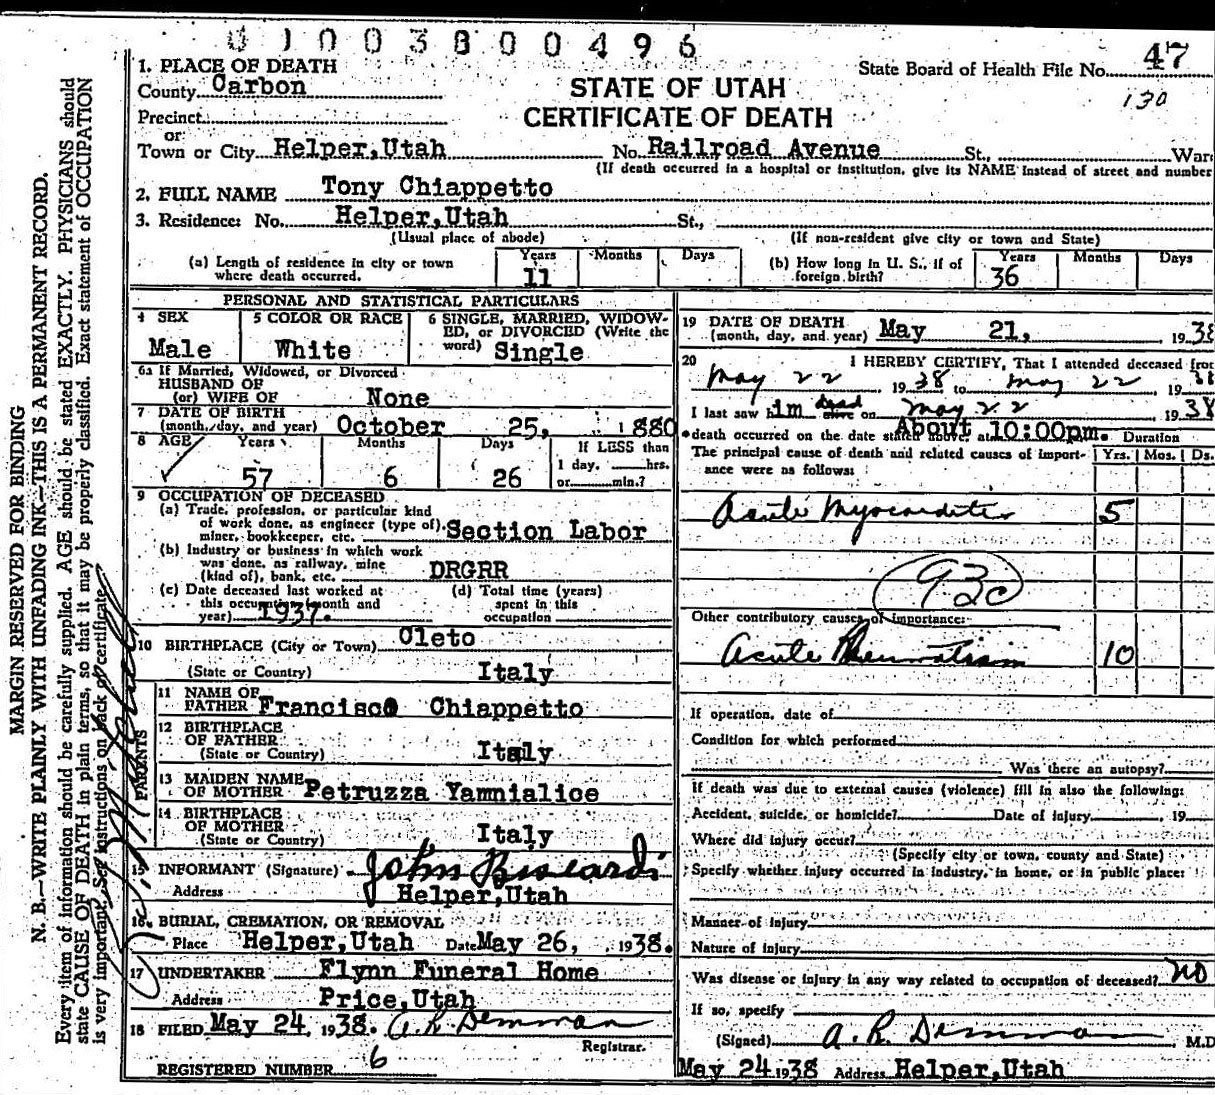 0100380 0496
47
State Board of Health File No.
130
1. PLACE OF DEATH
County Carbon
STATE OF UTAH
CERTIFICATE OF DEATH
Precinct
or
Town or City Helper,Utah No. Railroad Avenue St., War
(If death occurred in a hospital or institution, give its NAME instead of street and number
2. FULL NAME Tony Chiappetto
3. Residence: No. Helper,Utah St.,
(Usual place of abode) (If non-resident give city or town and State)
(a) Length of residence in city or town where death occurred. Years 11 Months Days
(b) How long in U. S., if of foreign birth? Years 36 Months Days
PERSONAL AND STATISTICAL PARTICULARS
4 SEX Male
5 COLOR OR RACE White
6 SINGLE, MARRIED, WIDOW-
ED, or DIVORCED (Write the
word) Single
6a If Married, Widowed, or Divorced
HUSBAND OF
(or) WIFE OF None
7 DATE OF BIRTH
(month, day, and year) October 25, 1880
8 AGE Years 57 Months 6 Days 26
If LESS than
1 day, hrs.
or min.?
9 OCCUPATION OF DECEASED
(a) Trade, profession, or particular kind
of work done, as engineer (type of),
miner, bookkeeper, etc. Section Labor
(b) Industry or business in which work
was done, as railway, mine
(kind of), bank, etc. DRGRR
(c) Date deceased last worked at
this occupation (month and
year) 1937.
(d) Total time (years)
spent in this
occupation
10 BIRTHPLACE (City or Town) Cleto
(State or Country) Italy
PARENTS
11 NAME OF
FATHER Francisco Chiappetto
12 BIRTHPLACE
OF FATHER
(State or Country) Italy
13 MAIDEN NAME
OF MOTHER Petruzza Yamnialice
14 BIRTHPLACE
OF MOTHER
(State or Country) Italy
15 INFORMANT (Signature) John
Address Helper,Utah
16. BURIAL, CREMATION, OR REMOVAL
Place Helper,Utah Date May 26, 1938.
17 UNDERTAKER Flynn Funeral Home
Address Price,Utah
18 FILED May 24, 1938. A. R. Demman
Registrar.
REGISTERED NUMBER 6
19 DATE OF DEATH
(month, day, and year) May 21, 1938
20 I HEREBY CERTIFY, That I attended deceased from
May 22, 1938 to May 22 1938
I last saw him dead alive on May 22 1938
death occurred on the date stated above, at About 10:00pm. Duration
The principal cause of death and related causes of import-
ance were as follows: Yrs. Mos. Ds.
Acute Myocarditis 5
93c
Other contributory causes of importance:
Acute Rheumatism 10
If operation, date of
Condition for which performed
Was there an autopsy?
If death was due to external causes (violence) fill in also the following:
Accident, suicide, or homicide? Date of injury, 19
Where did injury occur?
(Specify city or town, county and State)
Specify whether injury occurred in industry, in home, or in public place:
Manner of injury
Nature of injury
Was disease or injury in any way related to occupation of deceased? no
If so, specify
(Signed) A. R. Demman M.D
May 24 1938 Address Helper,Utah
MARGIN RESERVED FOR BINDING
N. B.—WRITE PLAINLY WITH UNFADING INK—THIS IS A PERMANENT RECORD.
Every item of information should be carefully supplied. AGE should be stated EXACTLY. PHYSICIANS should
state CAUSE OF DEATH in plain terms, so that it may be properly classified. Exact statement of OCCUPATION
is very important. See instructions on back of certificate.